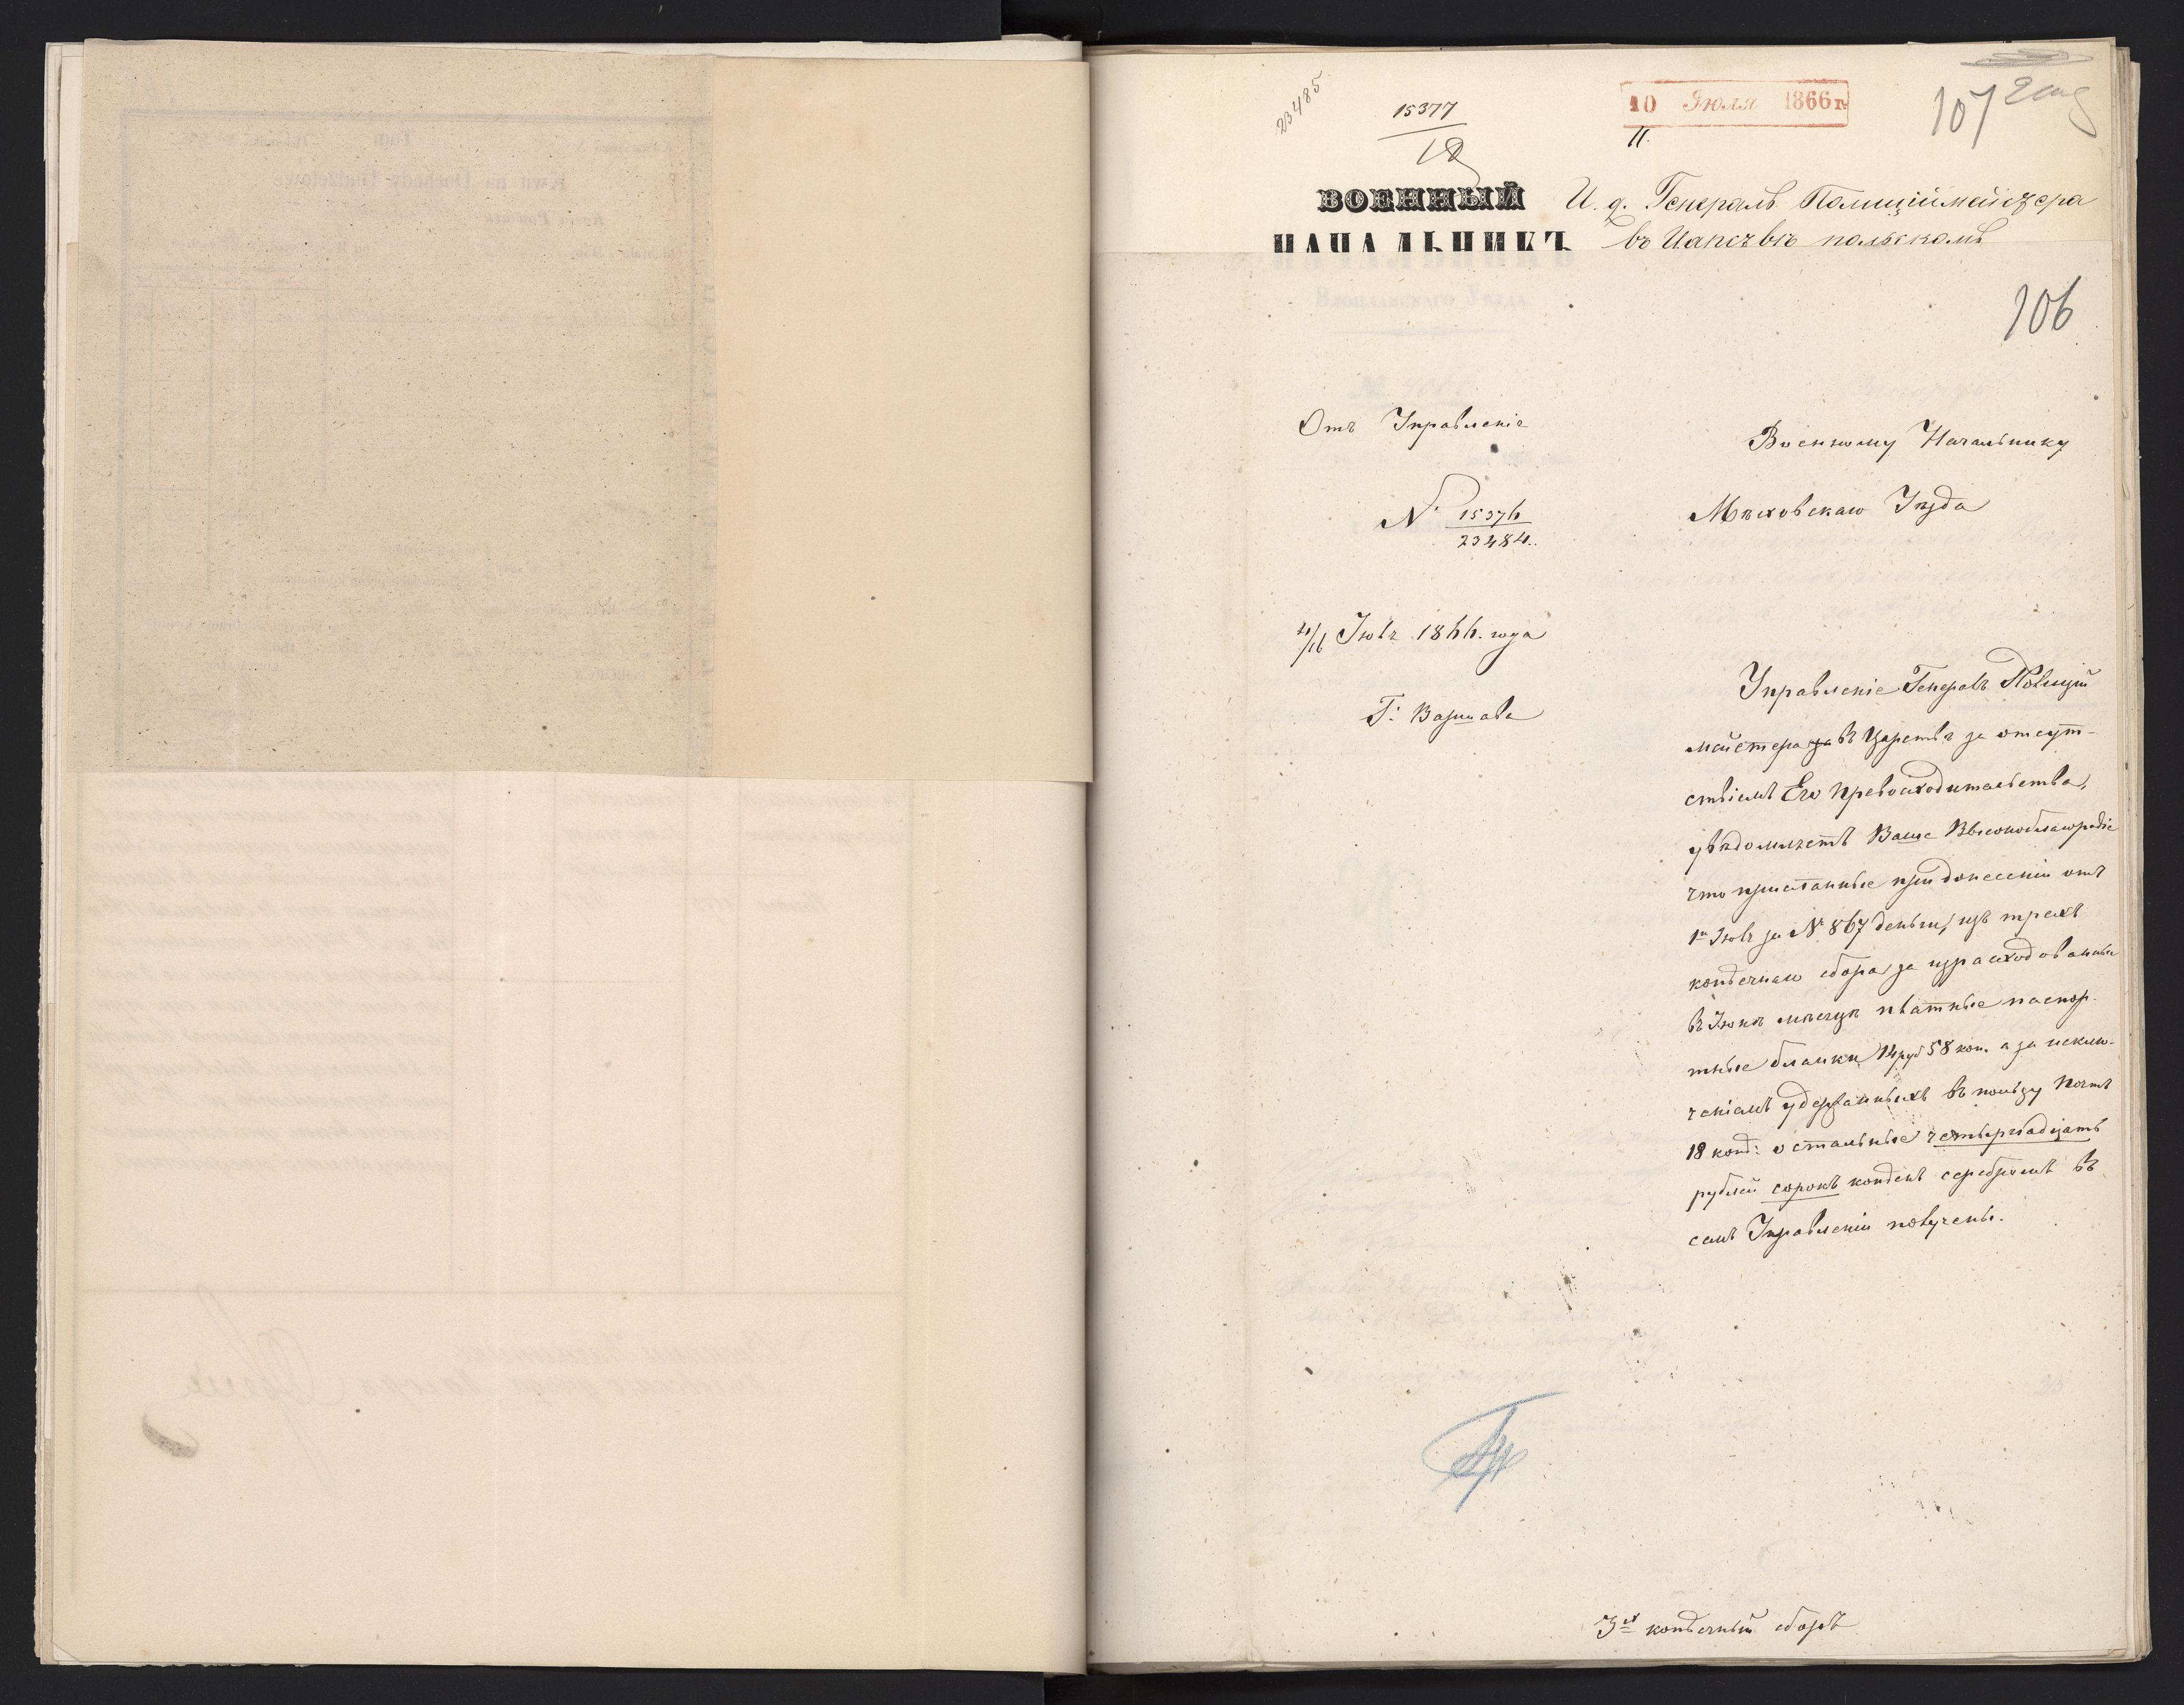 23485
15377
18
10 Июля 1866 г.
11.
107
ВОЕННЫЙ
НАЧАЛЬНИКЪ
И. д. Генералъ Полиціймейстера
въ Царствѣ польскомъ
106
Отъ Управленія
№ 15376
23484.
4/16 Июля 1866. года
Г. Варшава
Военному Начальнику
Мѣховскаго Уѣзда
Управленіе Генералъ Полицій
мейстера въ Царствѣ за отсут-
ствіемъ Его Превосходительства,
увѣдомляетъ Ваше Высокоблагородіе
что присланные при донесеніи отъ
1го Июля за № 867 деньги, изъ трехъ
копѣечнаго сбора, за израсходованные
въ Июнѣ мѣсяцѣ платные паспор-
тные бланки 14 руб 58 коп. а за исклю-
ченіемъ удержанныхъ въ пользу Почтъ
18 коп: остальные четырнадцать
рублей сорокъ копѣекъ серебромъ въ
семъ Управленіи получены.
3ех копѣечный сборъ